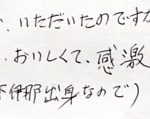 、いただいたのですが
、おいしくて、感激
下伊那出身なので)